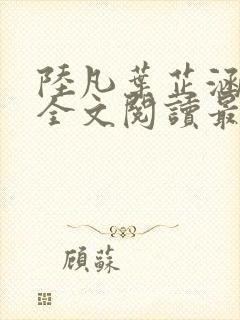 陸凡葉芷涵
全文閱讀最
顾蘇